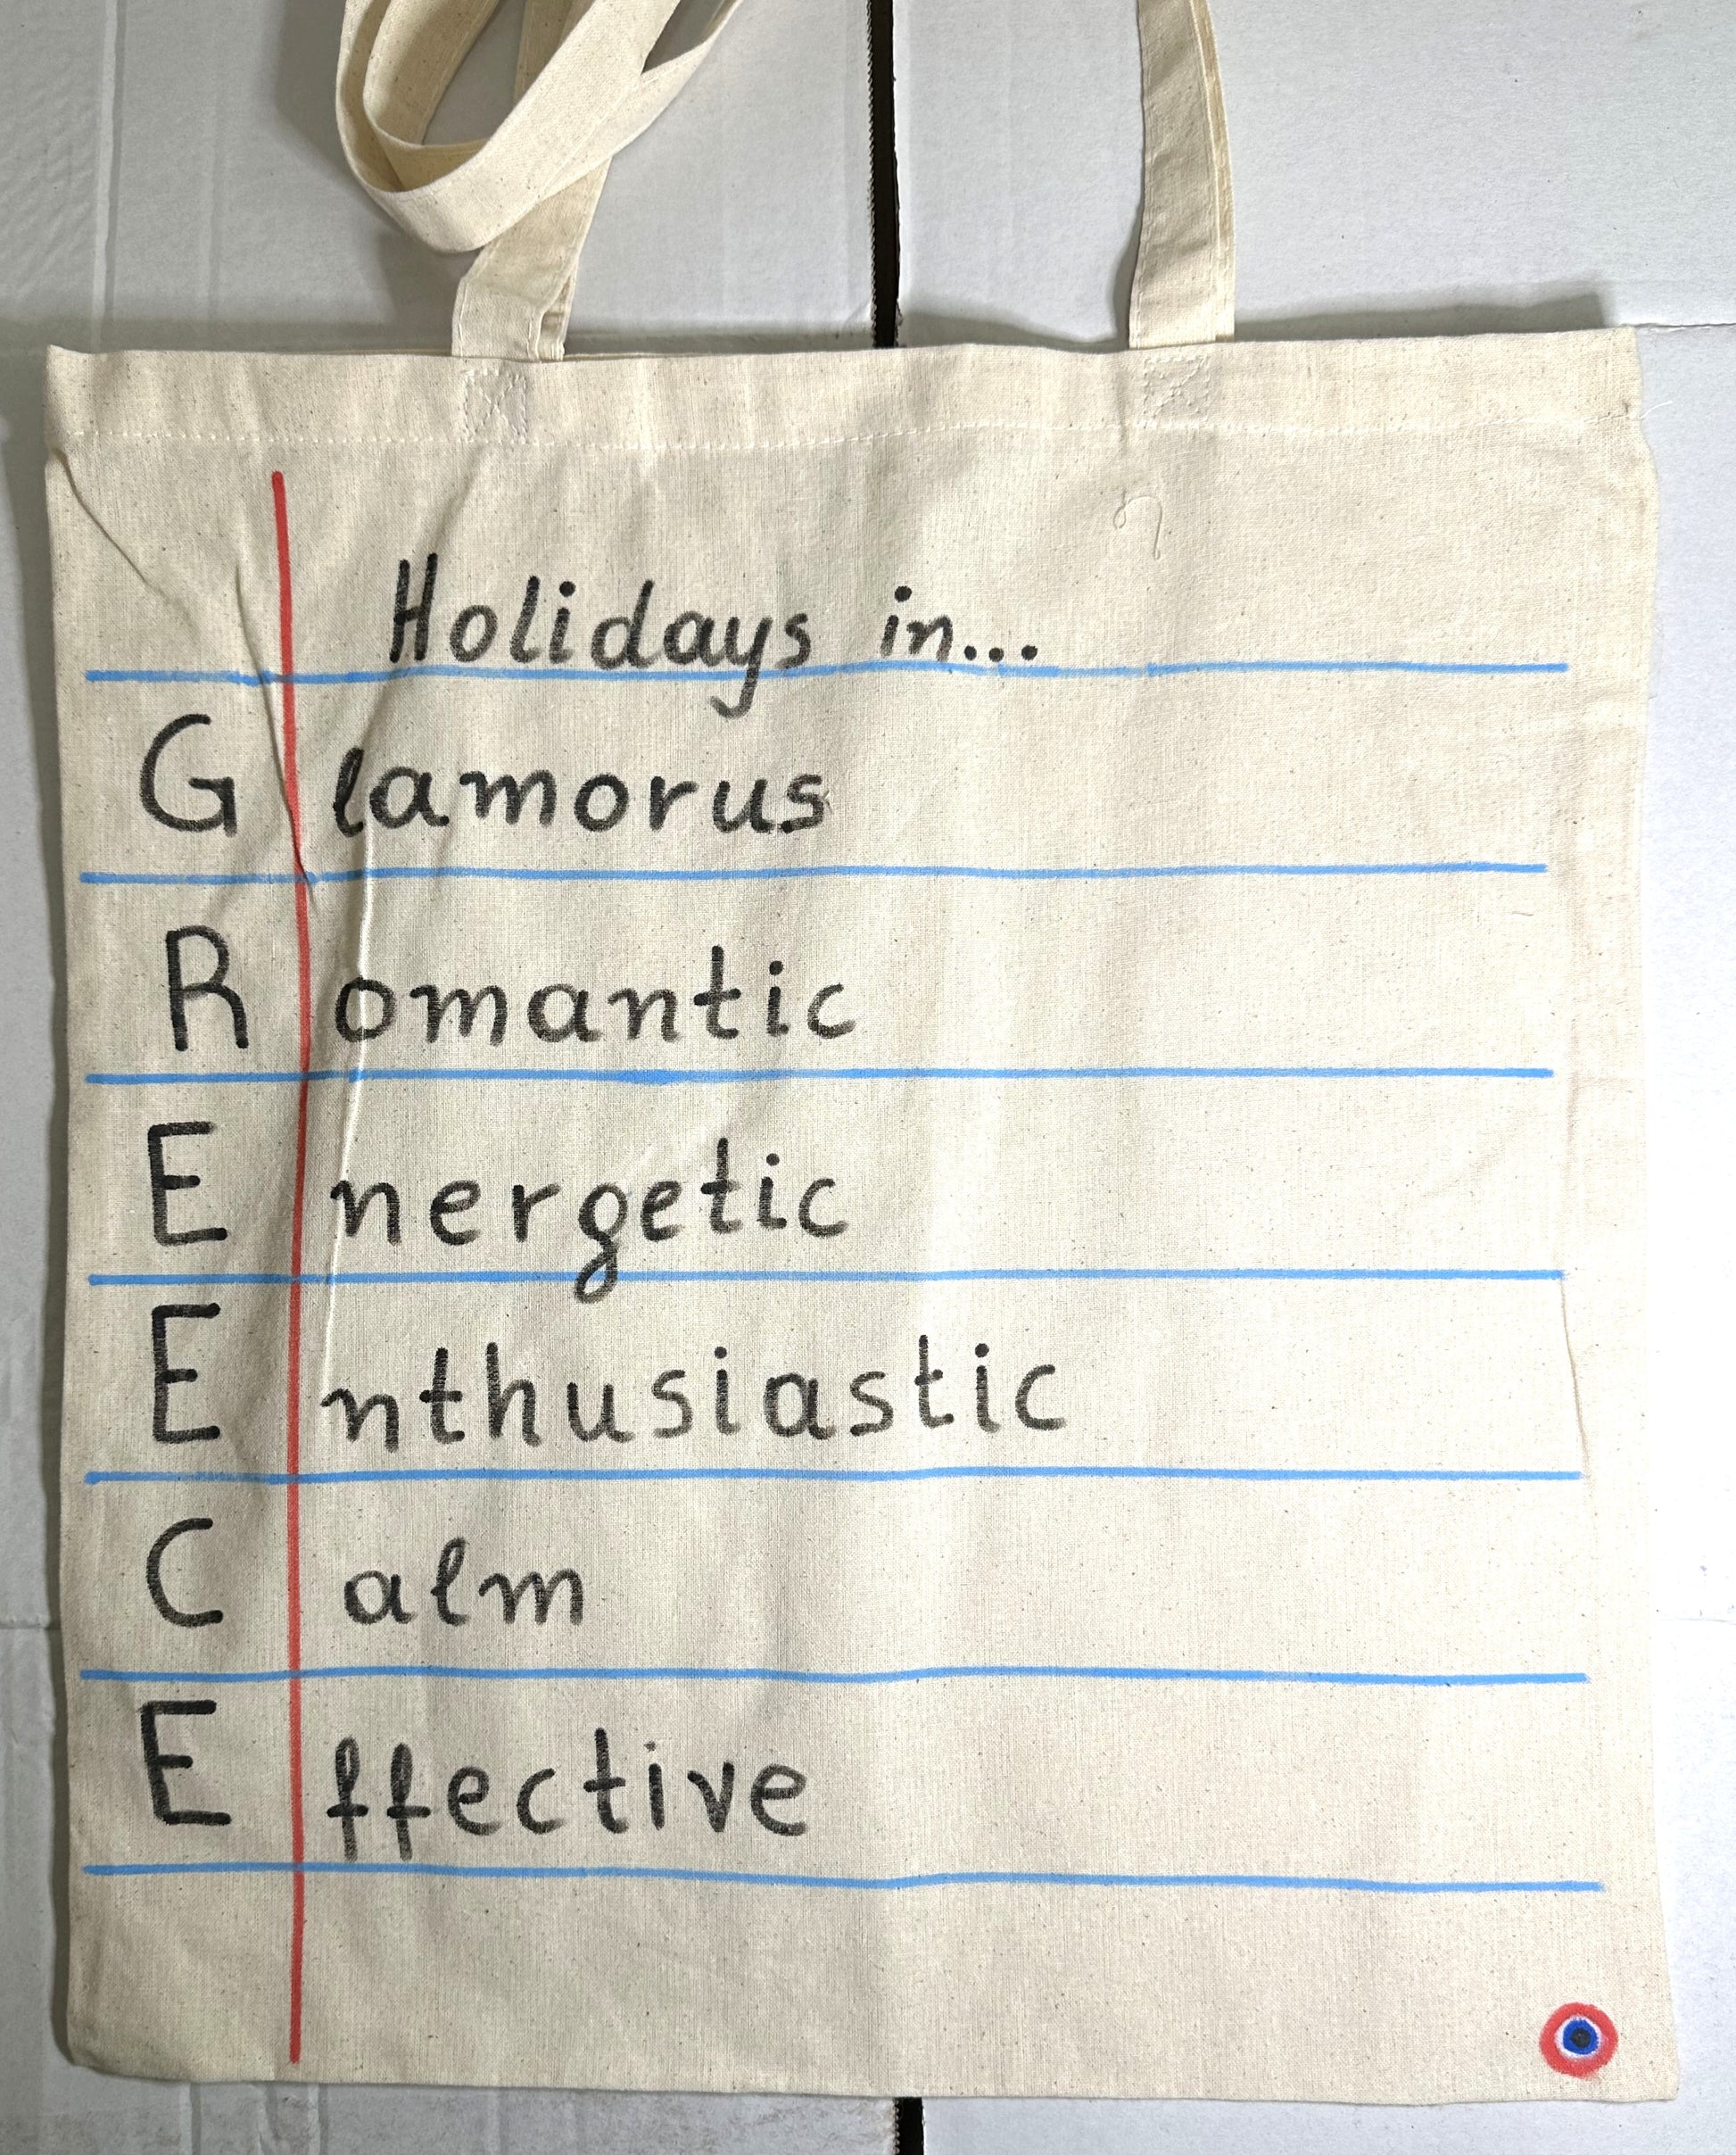 Holidays in...
Glamorus
Romantic
Energetic
Enthusiastic
Calm
Effective